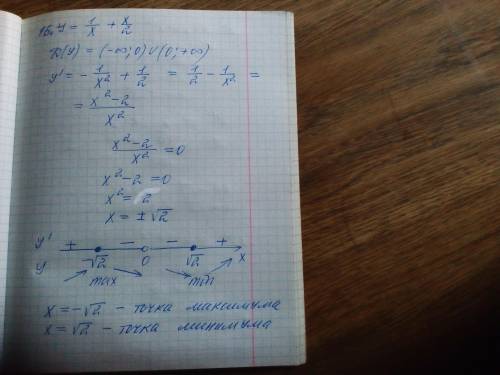 1б. y = 1/x + x/2
D(y) = (-∞; 0) ∪ (0; +∞)
y' = - 1/x² + 1/2 = 1/2 - 1/x² =
= x² - 2 / x²
x² - 2 / x² = 0
x² - 2 = 0
x² = 2
x = ± √2
y' + - - +
-√2 0 √2 x
y max min
x = -√2 - точка максимума
x = √2 - точка минимума